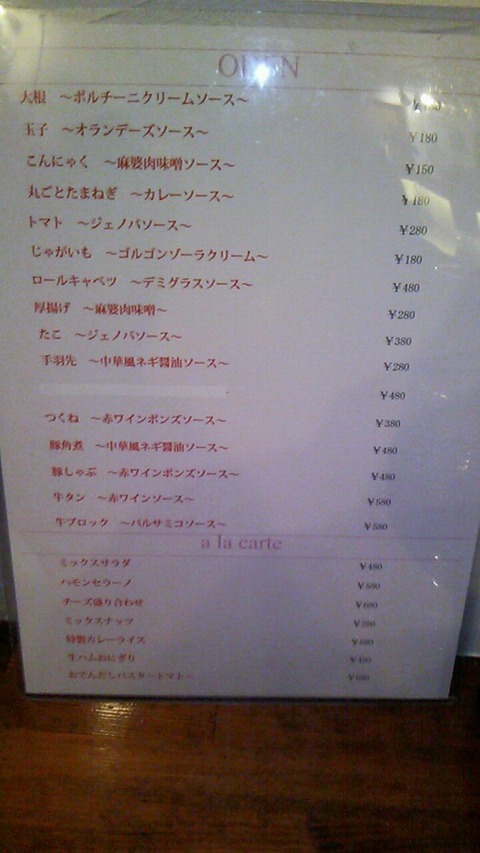 大根　～ポルチーニクリームソース～
玉子　～オランデーズソース～　¥180
こんにゃく　～麻婆肉味噌ソース～　¥150
丸ごとたまねぎ　～カレーソース～　¥180
トマト　～ジェノバソース～　¥280
じゃがいも　～ゴルゴンゾーラクリーム～　¥180
ロールキャベツ　～デミグラスソース～　¥480
厚揚げ　～麻婆肉味噌～　¥280
たこ　～ジェノバソース～　¥380
手羽先　～中華風ネギ醤油ソース～　¥280
¥480
つくね　～赤ワインポンズソース～　¥380
豚角煮　～中華風ネギ醤油ソース～　¥480
豚しゃぶ　～赤ワインポンズソース～　¥480
牛タン　～赤ワインソース～　¥580
牛ブロック　～バルサミコソース～　¥580
a la carte
ミックスサラダ　¥480
ハモンセラーノ　¥580
チーズ盛り合わせ　¥680
ミックスナッツ
特製カレーライス
生ハムおにぎり
おでんだしパスタートマトー